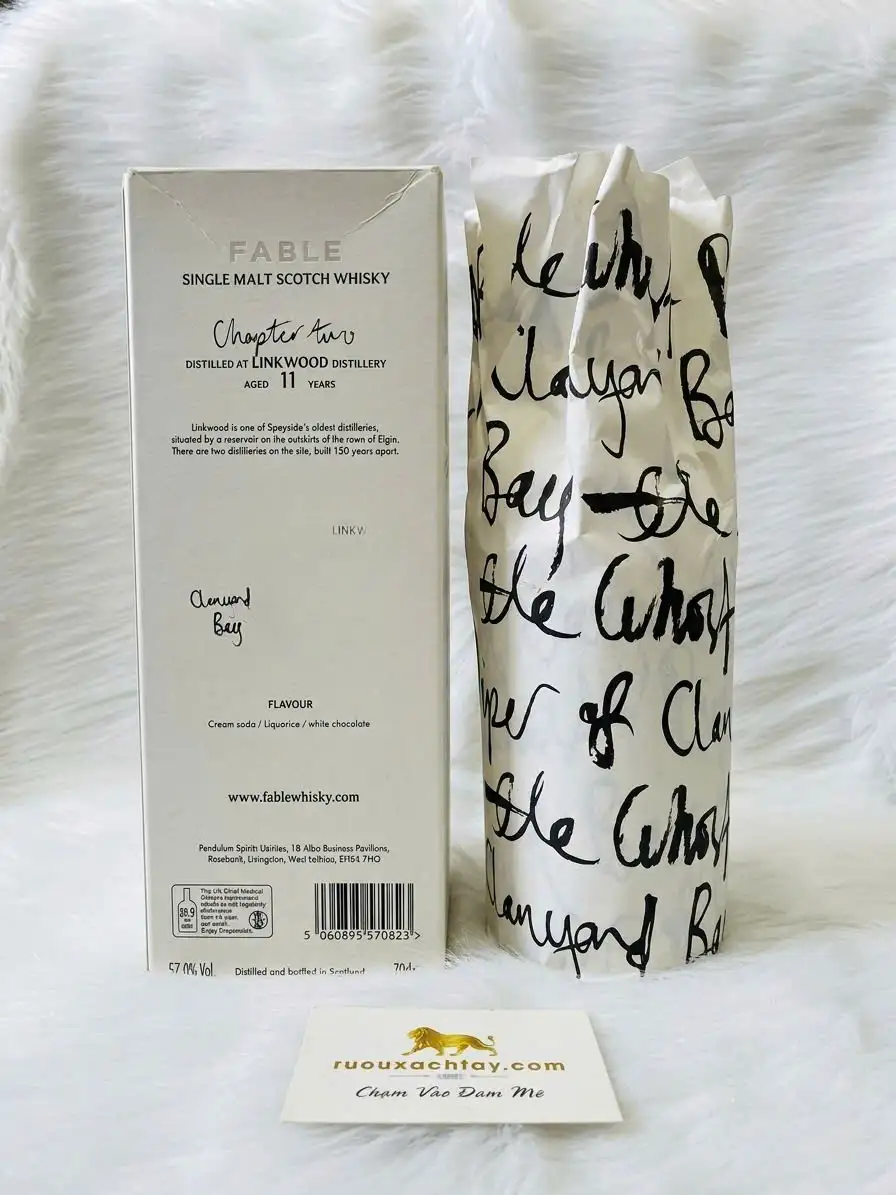 FABLE
SINGLE MALT SCOTCH WHISKY
Chapter two
DISTILLED AT LINKWOOD DISTILLERY
AGED 11 YEARS
Linkwood is one of Speyside's oldest distilleries,
situated by a reservoir on the outskirts of the rown of Elgin.
There are two distilieries on the site, built 150 years aport.
LINKW
Clanyard
Bay
FLAVOUR
Cream soda / Liquorice / white chocolate
www.fablewhisky.com
Pendulum Spirit 18 Albo Business Pavilions,
38.9
Enjoy
5 060895 570823 >
57.0% Vol. Distilled and bottled in Scotland 70
the Ghost
Clanyar Ba
Bay – the
the Ghost
iper of Clan
the Ghost
Clanyard Ba
ruouxachtay.com
Chạm Vào Đam Mê